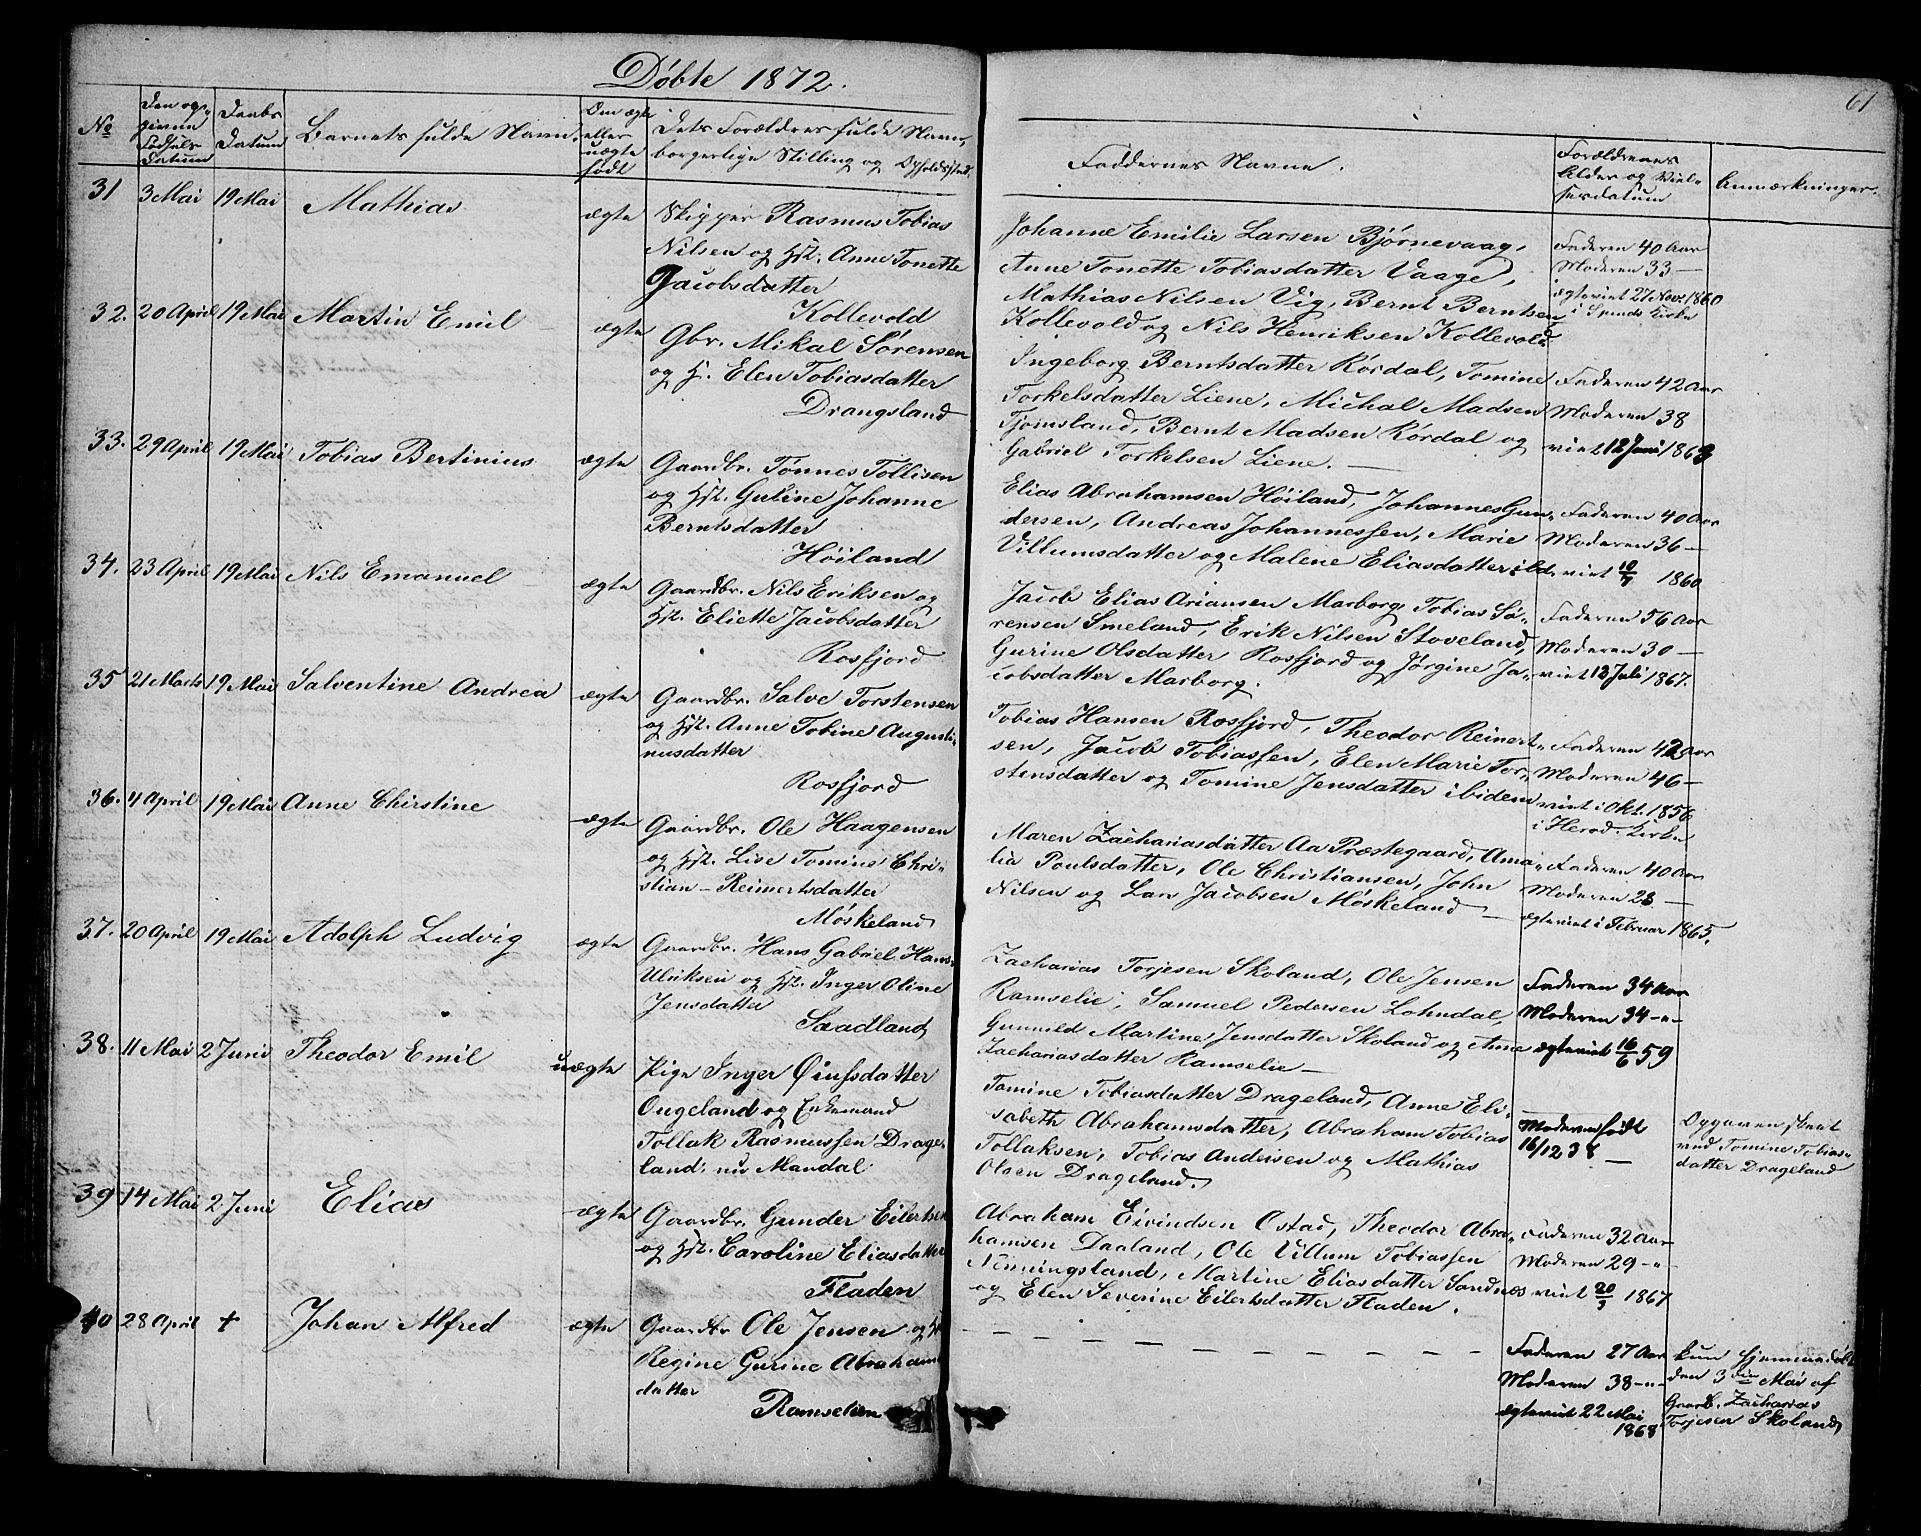 Døbte 1872.
61
No
Den opgivne Fødsels Datum
Daabs Datum
Barnets fulde Navn.
Om ægte eller uægte født
Dets Forældres fulde Navn, borgerlige Stilling og Opholdssted.
Faddernes Navne.
Forældrenes Alder og Vielsesdatum
Anmærkninger.
31 3 Mai 19 Mai Mathias ægte
Skipper Rasmus Tobias
Nilsen og Hst. Anne Tonette
Jacobsdatter
Kollevold
Johanne Emilie Larsen Bjørnevaag,
Anne Tonette Tobiasdatter Vaage,
Mathias Nilsen Vig, Bernt Berntsen
Kollevold og Nils Henriksen Kollevold
Faderen 40 Aar
Moderen 33 —
ægteviet 27 Nov. 1860
i Spinds Kirke
32. 20 April 19 Mai Martin Emil ægte
Gbr. Mikal Sørensen
og H. Elen Tobiasdatter
Drangsland
Ingeborg Berntsdatter Rørdal, Tomine
Torkelsdatter Liene, Michal Madsen
Tjomsland, Bernt Madsen Rørdal og
Gabriel Torkelsen Liene. —
Faderen 42 Aar
Moderen 38
viet 12 Juni 1863
33. 29 April 19 Mai Tobias Bertinius ægte
Gaardbr. Tønnes Tollisen
og Hst. Guline Johanne
Berntsdatter
Høiland
Elias Abrahamsen Høiland, Johannes Gun-
dersen, Andreas Johannessen, Marie
Villumsdatter og Malene Eliasdatter ibd.
Faderen 40 Aar
Moderen 36 —
viet 10/7 1860
34. 23 April 19 Mai Nils Emanuel ægte
Gaardbr. Nils Eriksen og
Hst. Eliette Jacobsdatter
Rosfjord
Jacob Elias Ariansen Marborg, Tobias Sø-
rensen Smeland, Erik Nilsen Stoveland,
Gurine Olsdatter Rosfjord og Jørgine Ja-
cobsdatter Marborg.
Faderen 56 Aar
Moderen 30 —
viet 12 Juli 1867.
35 21 Marts 19 Mai Salventine Andrea ægte
Gaardbr. Salve Torstensen
og Hst. Anne Tobine Augusti-
nusdatter
Rosfjord
Tobias Hansen Rosfjord, Theodor Reinert-
sen, Jacob Tobiassen, Elen Marie Tor-
stensdatter og Tomine Jensdatter ibidem
Faderen 42 Aar
Moderen 46 —
viet i Okt. 1856
i Herad Kirke
36. 4 April 19 Mai Anne Chirstine ægte
Gaardbr. Ole Haagensen
og Hst. Lise Tomine Chri-
stian - Reinertsdatter
Møskeland
Maren Zachariasdatter Aa Præstegaard, Ama-
lia Poulsdatter, Ole Christiansen, John
Nilsen og Lars Jacobsen Møskeland —
Faderen 40 Aar
Moderen 28 —
ægteviet i Februar 1865.
37. 20 April 19 Mai Adolph Ludvig ægte
Gaardbr. Hans Gabriel Hans-
Ulriksen og Hst. Inger Oline
Jensdatter
Saadland
Zacharias Torjesen Skoland, Ole Jensen
Ramselie, Samuel Pedersen Lohndal,
Gunnild Martine Jensdatter Skoland og Anne
Zachariasdatter Ramselie —
Faderen 34 Aar
Moderen 34 -"-
ægteviet 16/6 59
38. 11 Mai 2 Juni Theodor Emil uægte
Pige Inger
Ougeland og Enkemand
Tollak Rasmussen Drage-
land: nu Mandal
Tomine Tobiasdatter Drageland, Anne Eli-
sabeth Abrahamsdatter, Abraham Tobias
Tollaksen, Tobias Andersen og Mathias
Olsen Drageland.
Moderen født
16/12 38 —
Opgaven skeet
ved Tomine Tobias-
datter Drageland
39 14 Mai 2 Juni Elias ægte
Gaardbr. Gunder Eilertsen
og Hst. Caroline Eliasdatter
Fladen
Abraham Eivindsen Ostad, Theodor Abra-
hamsen Daaland, Ole Villum Tobiassen
Nømingsland, Martine Eliasdatter Sandnæs
og Elen Severine Eilertsdatter Fladen.
Faderen 32 Aar
Moderen 29 -"-
viet 20/3 1867
40 28 April + Johan Alfred ægte
Gaardbr Ole Jensen og H
Regine Gurine Abraham
datter
Ramselien
— — — — — — — — —
Faderen 27 Aar
Moderen 38 -"-
ægteviet 22 Mai
1868
kun hjemmedøbt
den 3die Mai af
Gaardb. Zacharias
Torjesen Skoland